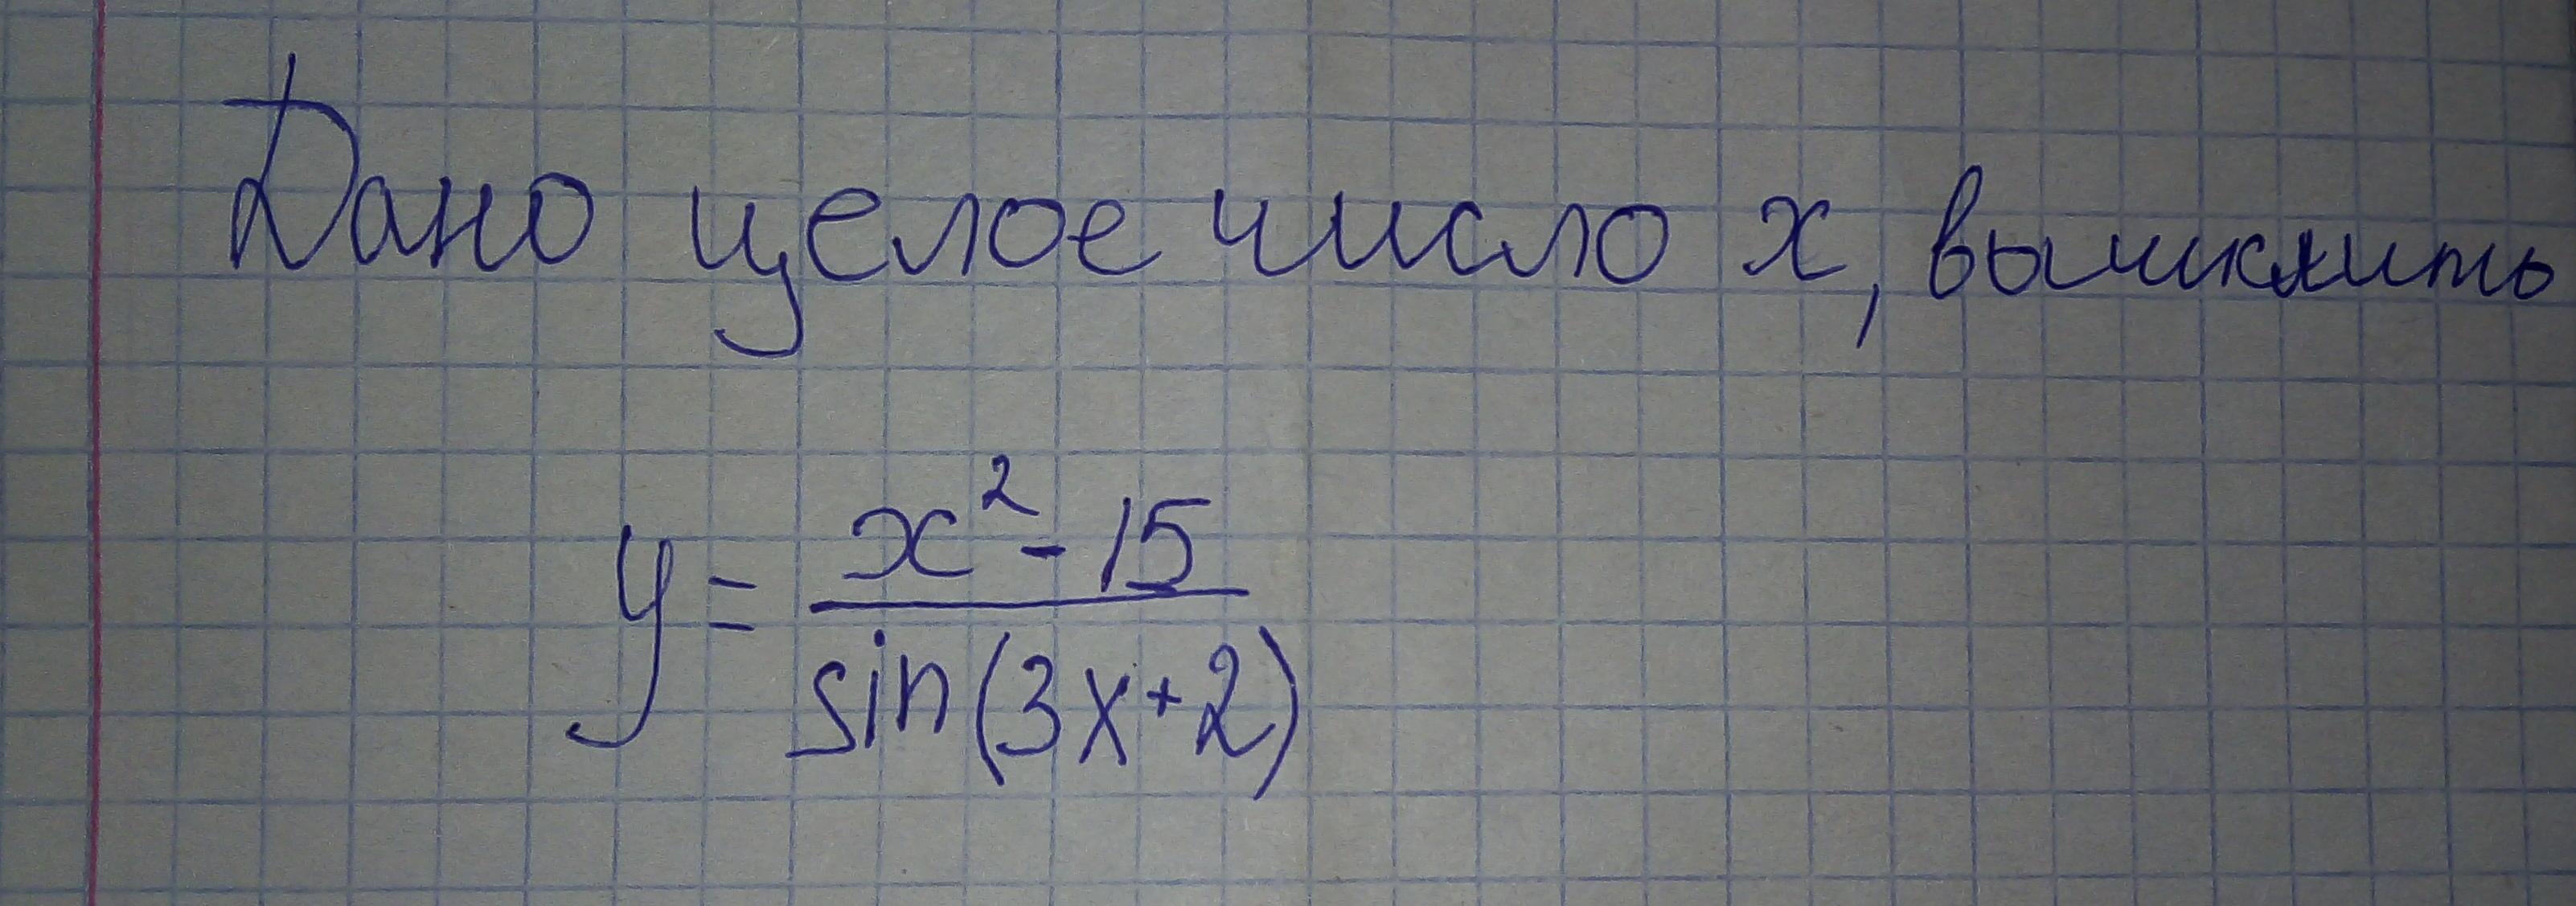 Дано целое число x, вычислить
y = x² - 15 / sin(3x+2)